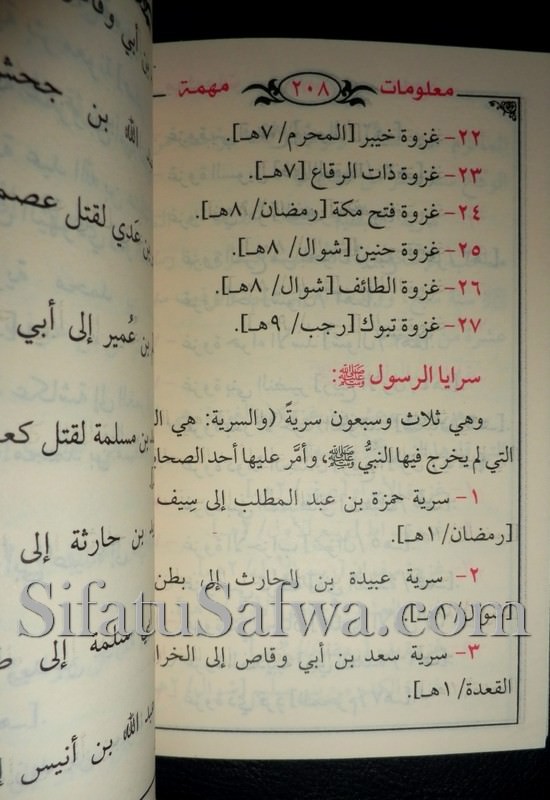 معلومات ٢٠٨ مهمة
٢٢- غزوة خيبر [المحرم/ ٧هـ].
٢٣- غزوة ذات الرقاع [٧هـ].
٢٤- غزوة فتح مكة [رمضان/ ٨هـ].
٢٥- غزوة حنين [شوال/ ٨هـ].
٢٦- غزوة الطائف [شوال/ ٨هـ].
٢٧- غزوة تبوك [رجب/ ٩هـ].
سرايا الرسول ﷺ:
وهي ثلاث وسبعون سريةً (والسرية: هي
التي لم يخرج فيها النبيُّ ﷺ، وأمَّر عليها أحد
١- سرية حمزة بن عبد المطلب إلى سِيف
[رمضان/ ١هـ].
٢- سرية عبيدة بن الحارث إلى بطن
[شوال/ ١هـ].
٣- سرية سعد بن أبي وقاص إلى
القعدة/ ١هـ].
بن أبي
الله بن جحش
بن عَدي لقتل
بن عُمير إلى أبي
بن مسلمة لقتل
بن حارثة إلى
إلى
الله بن أنيس
SifatuSafwa.com